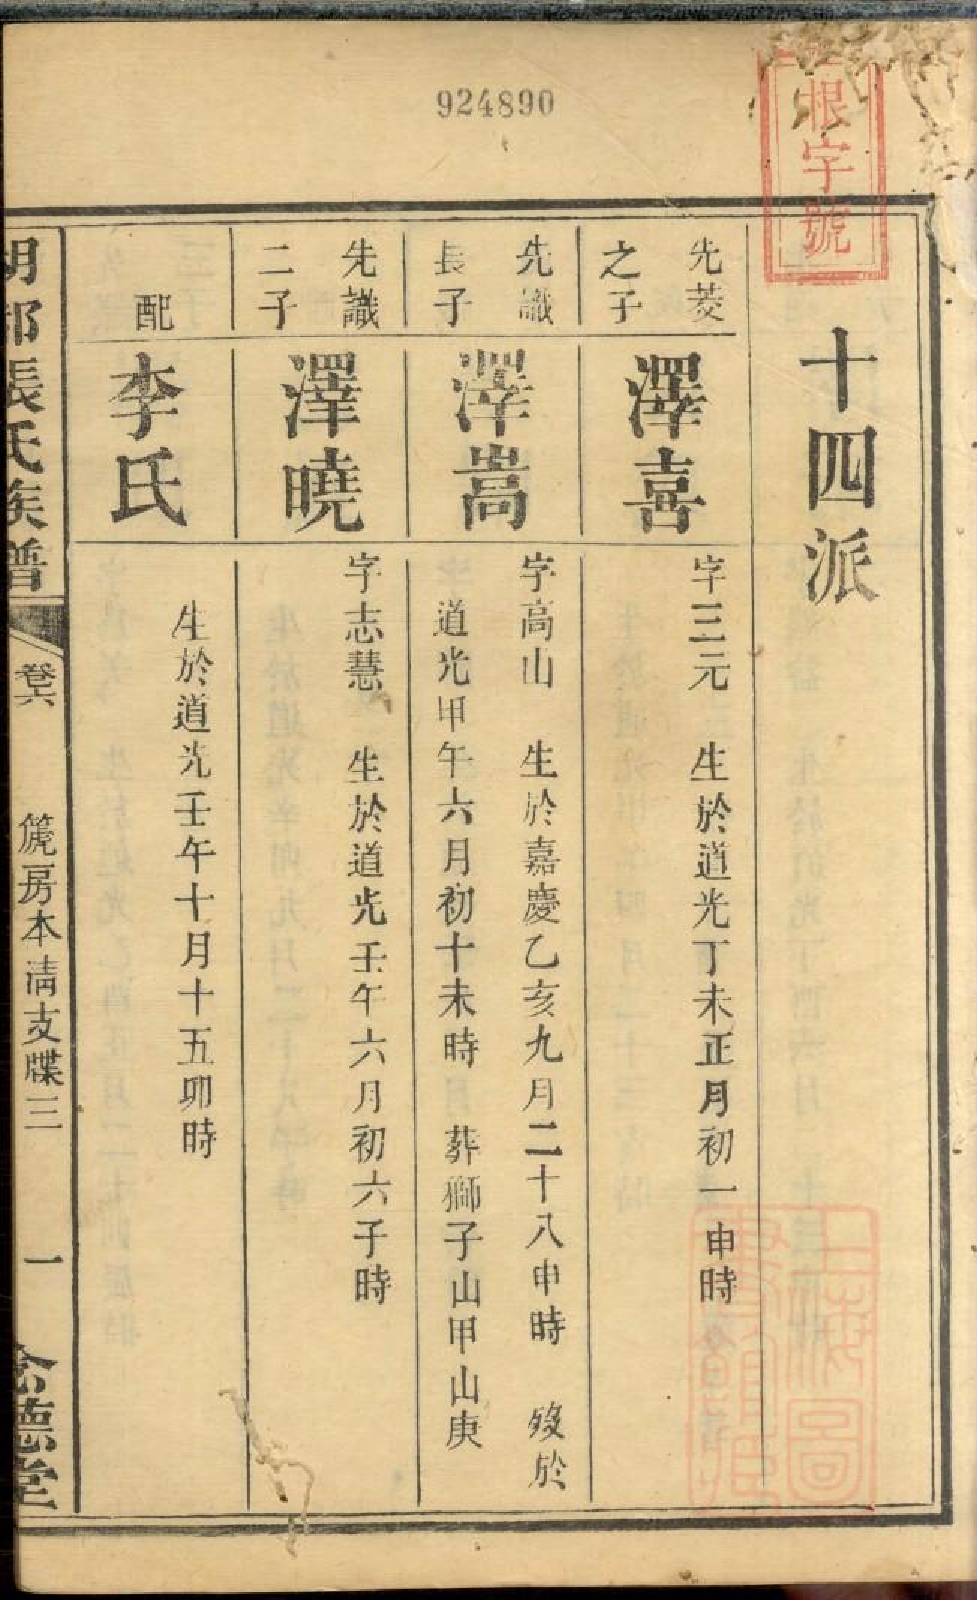 924890
根字號
十四派
先菱
之子
澤喜
字三元 生於道光丁未正月初一申時
先識
長子
澤嵩
字高山 生於嘉慶乙亥九月二十八申時 歿於
道光甲午六月初十未時 葬獅子山甲山庚
先識
二子
澤曉
字志慧 生於道光壬午六月初六子時
配
李氏
生於道光壬午十月十五卯時
張氏族譜
卷六
篪房本清支牒三
一
念德堂
上海圖
書館藏